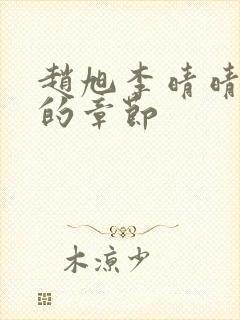 趙旭李晴晴
的章節
木涼少